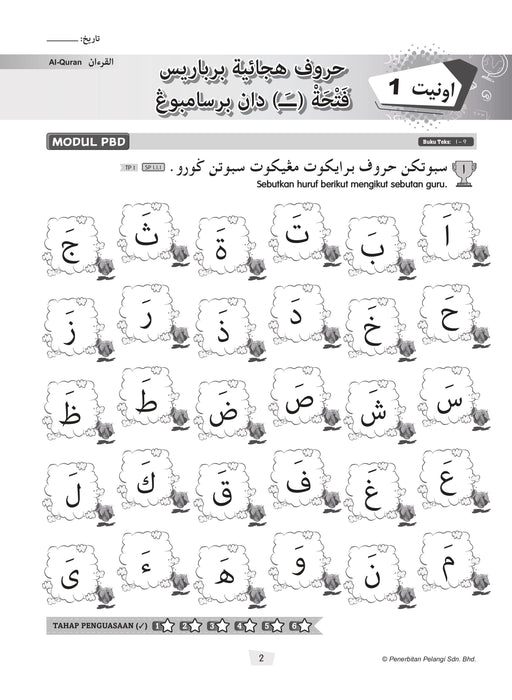 تاريخ: ________
القرءان Al-Quran
اونيت 1
حروف هجائية برباريس
فَتْحَةْ (ـَـ) دان برسامبوڠ
MODUL PBD
Buku Teks: ١ – ٩
١ سبوتكن حروف برايكوت مڠيكوت سبوتن ڬورو. SP 1.1.1 TP 1
Sebutkan huruf berikut mengikut sebutan guru.
اَ بَ تَ ةَ ثَ جَ
حَ خَ دَ ذَ رَ زَ
سَ شَ صَ ضَ طَ ظَ
عَ غَ فَ قَ كَ لَ
مَ نَ وَ هَـ ءَ ىَ
TAHAP PENGUASAAN (✓) 1 2 3 4 5 6
2
© Penerbitan Pelangi Sdn. Bhd.